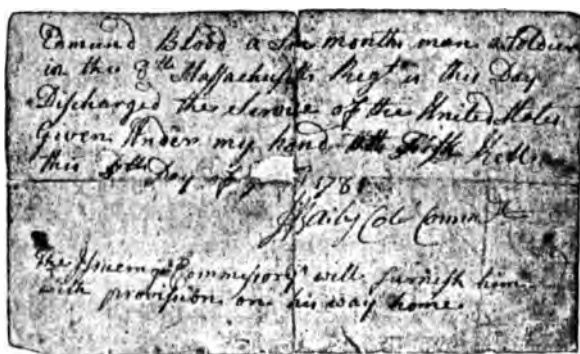 Edmund Blood a Six months man a Soldier
in the 8th Massachusetts Regt is this Day
Discharged the Service of the United States
Given Under my hand
this Day of 1781
Col Commdt
The Commissory will furnish him
with provision on his way home